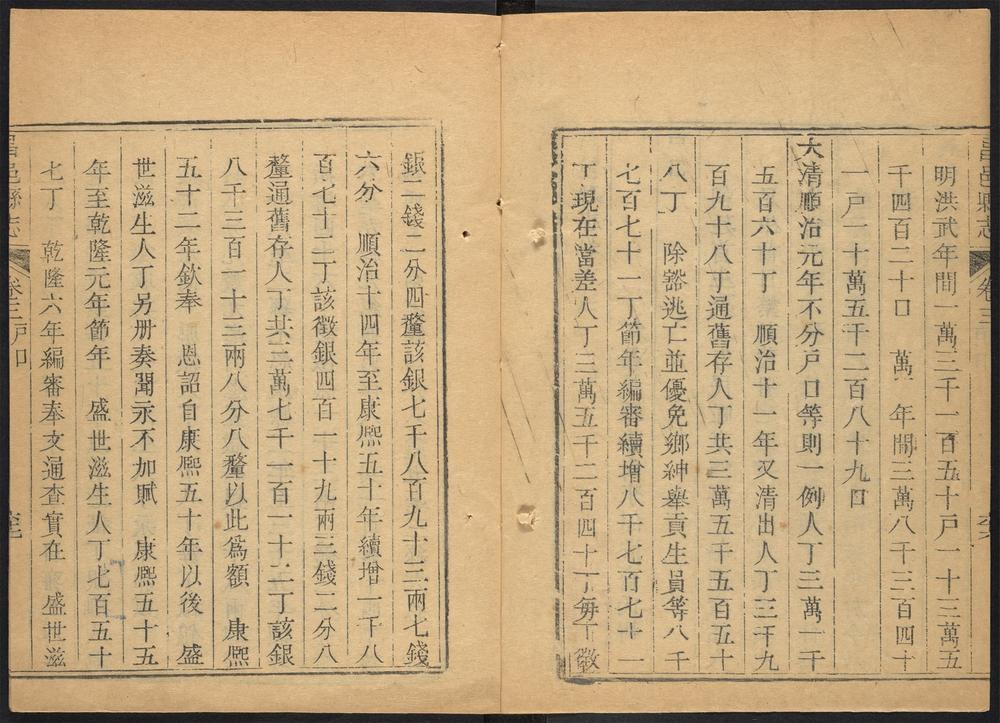 昌邑縣志 卷三
明洪武年間一萬三千一百五十戸一十三萬五
千四百二十口 萬 年間三萬八千三百四十
一戸一十萬五千二百八十九口
大清順治元年不分戸口等則一例人丁三萬一千
五百六十丁 順治十一年又清出人丁三千九
百九十八丁通舊存人丁共三萬五千五百五十
八丁 除豁逃亡並優免鄉紳舉貢生員等八千
七百七十一丁節年編審續增八千七百七十一
丁現在當差人丁三萬五千二百四十丁毎丁徵
銀二錢二分四釐該銀七千八百九十三兩七錢
六分 順治十四年至康熙五十年續增一千八
百七十二丁該徵銀四百一十九兩三錢二分八
釐通舊存人丁共三萬七千一百一十二丁該銀
八千三百一十三兩八分八釐以此爲額 康熙
五十二年欽奉 恩詔自康熙五十年以後盛
世滋生人丁另册奏聞永不加賦 康熙五十五
年至乾隆元年節年 盛世滋生人丁七百五十
七丁 乾隆六年編審奉文通查實在 盛世滋
昌邑縣志 卷三戸口